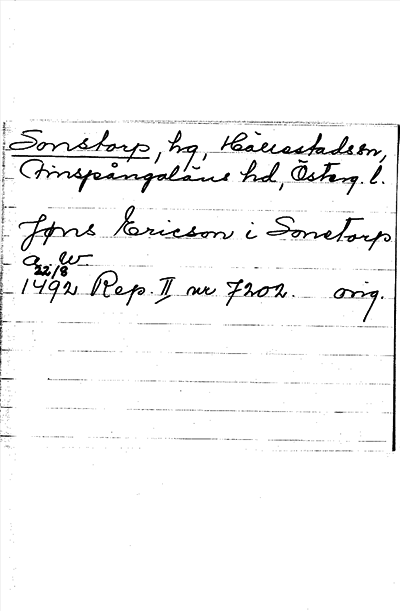 Sonstorp, hg, Hällestads sn,
Finspångaläns hd, Österg. l.
Jøns Ericson i Sonstorp
a. W
22/8
1492 Rep. II nr 7202. orig.